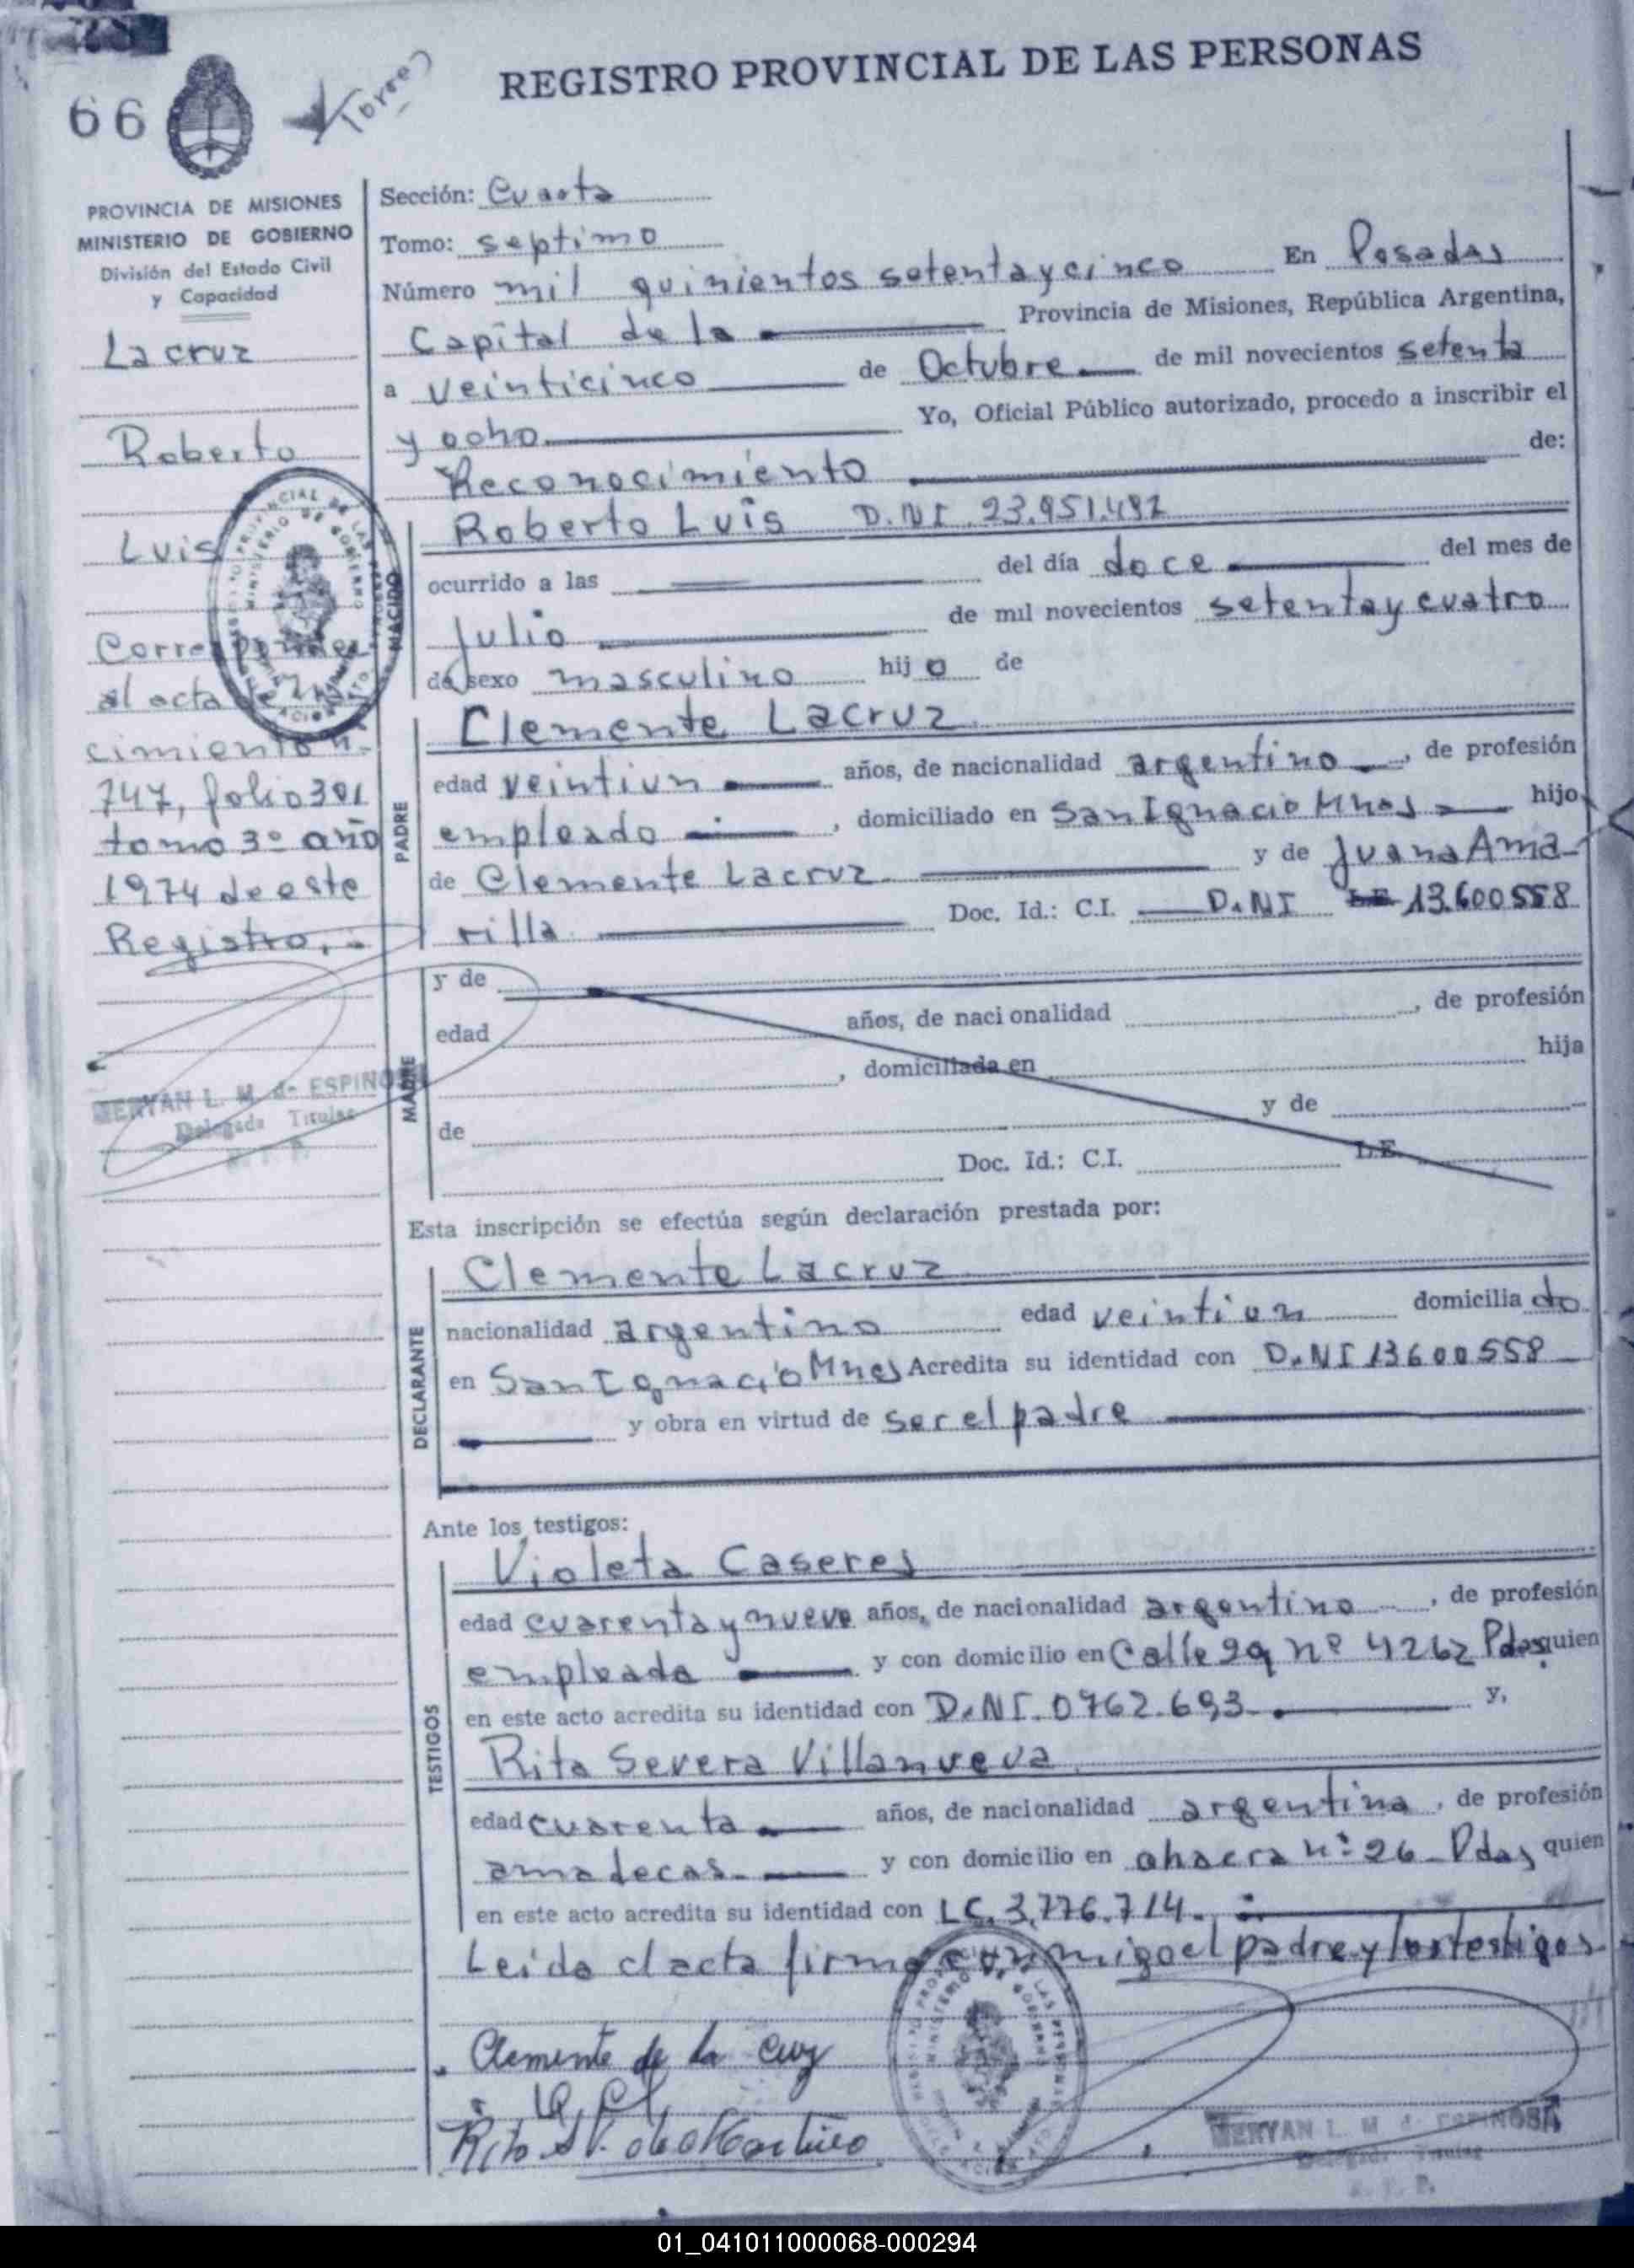 REGISTRO PROVINCIAL DE LAS PERSONAS
66
PROVINCIA DE MISIONES
MINISTERIO DE GOBIERNO
División del Estado Civil
y Capacidad
Lacruz
Roberto
Luis
Corresponde
al acta de Na
cimiento n.
747, folio 301
tomo 3º año
1974 de este
Registro,.-
L. M. de ESPINOSA
Delegada Titular
Sección: Cuarta
Tomo: septimo
Número mil quinientos setenta y cinco En Posadas
Capital de la Provincia de Misiones, República Argentina,
a veinticinco de Octubre de mil novecientos setenta
y ocho Yo, Oficial Público autorizado, procedo a inscribir el
Reconocimiento de:
NACIDO
Roberto Luis D.NI. 23.951.492
ocurrido a las del día doce del mes de
Julio de mil novecientos setenta y cuatro
de sexo masculino hijo de
PADRE
Clemente Lacruz
edad veintiun años, de nacionalidad argentino, de profesión
empleado, domiciliado en San Ignacio Mnes hijo
de Clemente Lacruz y de Juana Ama-
rilla Doc. Id.: C.I. D.NI L.E. 13.600558
MADRE
y de
edad años, de nacionalidad , de profesión
, domiciliada en hija
de y de
Doc. Id.: C.I. L.E.
Esta inscripción se efectúa según declaración prestada por:
DECLARANTE
Clemente Lacruz
nacionalidad argentino edad veintiun domiciliado
en San Ignacio Mnes Acredita su identidad con D.NI 13600558
y obra en virtud de ser el padre
Ante los testigos:
TESTIGOS
Violeta Caseres
edad cuarenta y nueve años, de nacionalidad argentino, de profesión
empleada y con domicilio en Calle 29 nº 4262 Pdas quien
en este acto acredita su identidad con D.NI. 0762.693. y,
Rita Severa Villanueva
edad cuarenta años, de nacionalidad argentina, de profesión
amadecas. y con domicilio en chacra nº 26 - Pdas quien
en este acto acredita su identidad con LC. 3.776.714.
Leida el acta firma conmigo el padre y los testigos
Clemente de la Cruz
Rita
L. M. de ESPINOSA
Delegada Titular
01_041011000068-000294